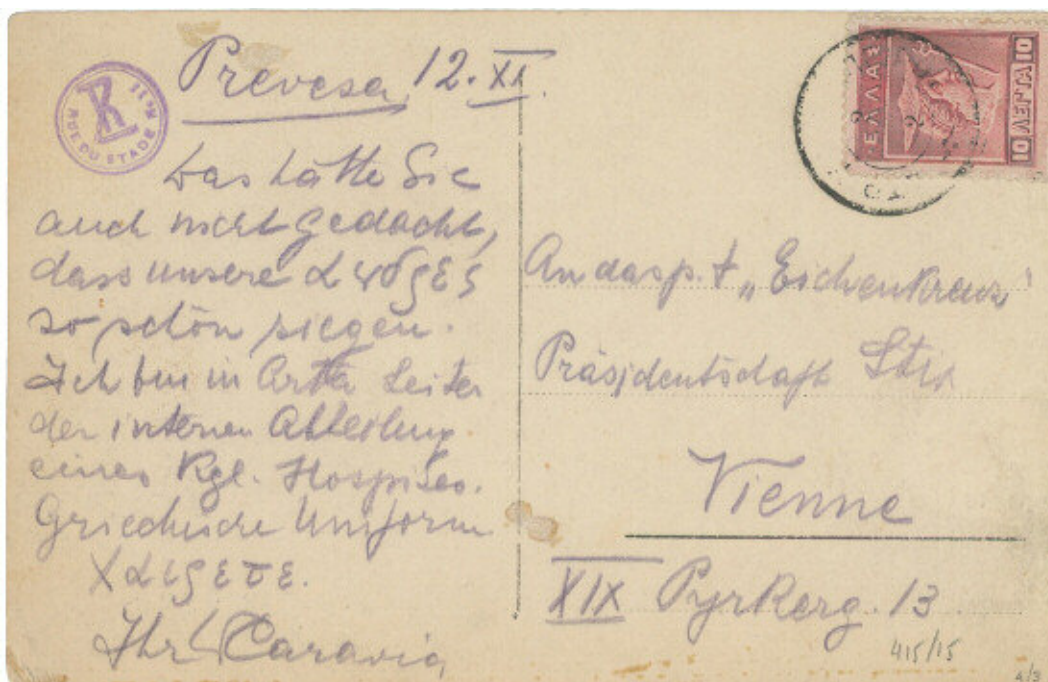 Prevesa, 12. XI.
R
RUE DU STADE No 11
Das hätte Sie
auch nicht gedacht,
dass unsere ανδρες
so schön siegen.
Ich bin in Arta Leiter
der internen Abteilung
eines Kgl. Hospites.
Griechische Uniform
Χαιρετε.
Ihr Caravia
ΕΛΛΑΣ
10 ΛΕΠΤΑ 10
An das p. t. „Eichenkranz"
Präsidentschaft
Vienne
XIX Pyrkerg. 13
415/15
4/3